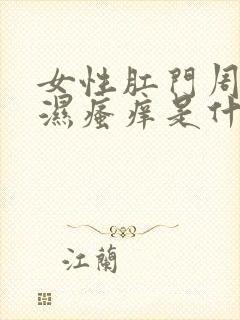 女性肛門周
濕瘙痒是什
江蘭